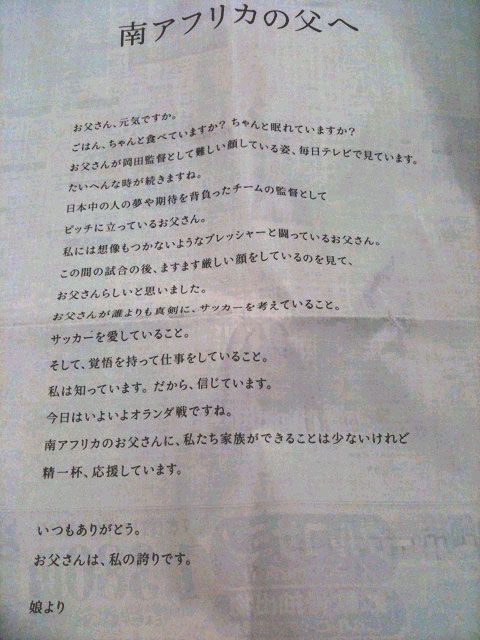 南アフリカの父へ
お父さん、元気ですか。
ごはん、ちゃんと食べていますか？ ちゃんと眠れていますか？
お父さんが岡田監督として難しい顔している姿、毎日テレビで見ています。
たいへんな時が続きますね。
日本中の人の夢や期待を背負ったチームの監督として
ピッチに立っているお父さん。
私には想像もつかないようなプレッシャーと闘っているお父さん。
この間の試合の後、ますます厳しい顔をしているのを見て、
お父さんらしいと思いました。
お父さんが誰よりも真剣に、サッカーを考えていること。
サッカーを愛していること。
そして、覚悟を持って仕事をしていること。
私は知っています。だから、信じています。
今日はいよいよオランダ戦ですね。
南アフリカのお父さんに、私たち家族ができることは少ないけれど
精一杯、応援しています。
いつもありがとう。
お父さんは、私の誇りです。
娘より